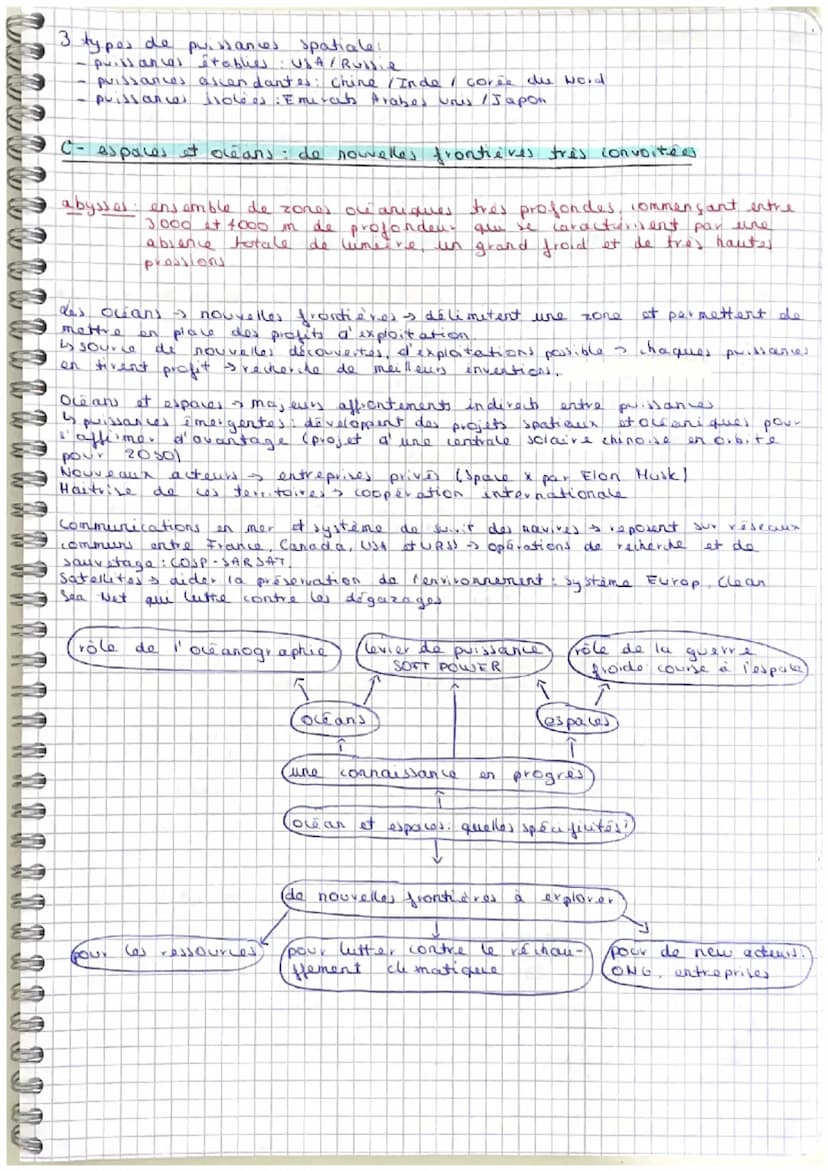 3 types de puissances spatiales
- puissances établies : USA / Russie
- puissances ascendantes : Chine / Inde / Corée du Nord
- puissances isolées : Emirats Arabes Unis / Japon
C - espaces et océans : de nouvelles frontières très convoitées
abysses : ensemble de zones océaniques très profondes, commençant entre
3000 et 4000 m de profondeur qui se caractérisent par une
absence totale de lumière, un grand froid et de très hautes
pressions
des océans → nouvelles frontières → délimitent une zone et permettent de
mettre en place des profits d'exploitation
↳ source de nouvelles découvertes, d'exploitations possible → chaques puissances
en tirent profit → recherche de meilleurs inventions.
Océans et espaces → majeurs affrontements indirects entre puissances
↳ puissances émergentes : développent des projets spatiaux et océaniques pour
s'affirmer d'avantage (projet d'une centrale solaire chinoise en orbite
pour 2050)
Nouveaux acteurs → entreprises privés (Space X par Elon Musk)
Maitrise de ces territoires → coopération internationale
Communications en mer et système de suivit des navires → reposent sur réseaux
communs entre France, Canada, USA et URSS → opérations de recherche et de
sauvetage : COSP-SARSAT.
Satellites → aider la préservation de l'environnement : système Europ. Clean
Sea Net qui lutte contre les dégazages
rôle de l'océanographie
levier de puissance
SOFT POWER
rôle de la guerre
froide : course à l'espace
océans
espaces
une connaissance en progrès
océan et espaces : quelles spécificités ?
de nouvelles frontières à explorer
pour les ressources
pour lutter contre le réchau-
ffement climatique
pour de new acteurs :
ONG, entreprises